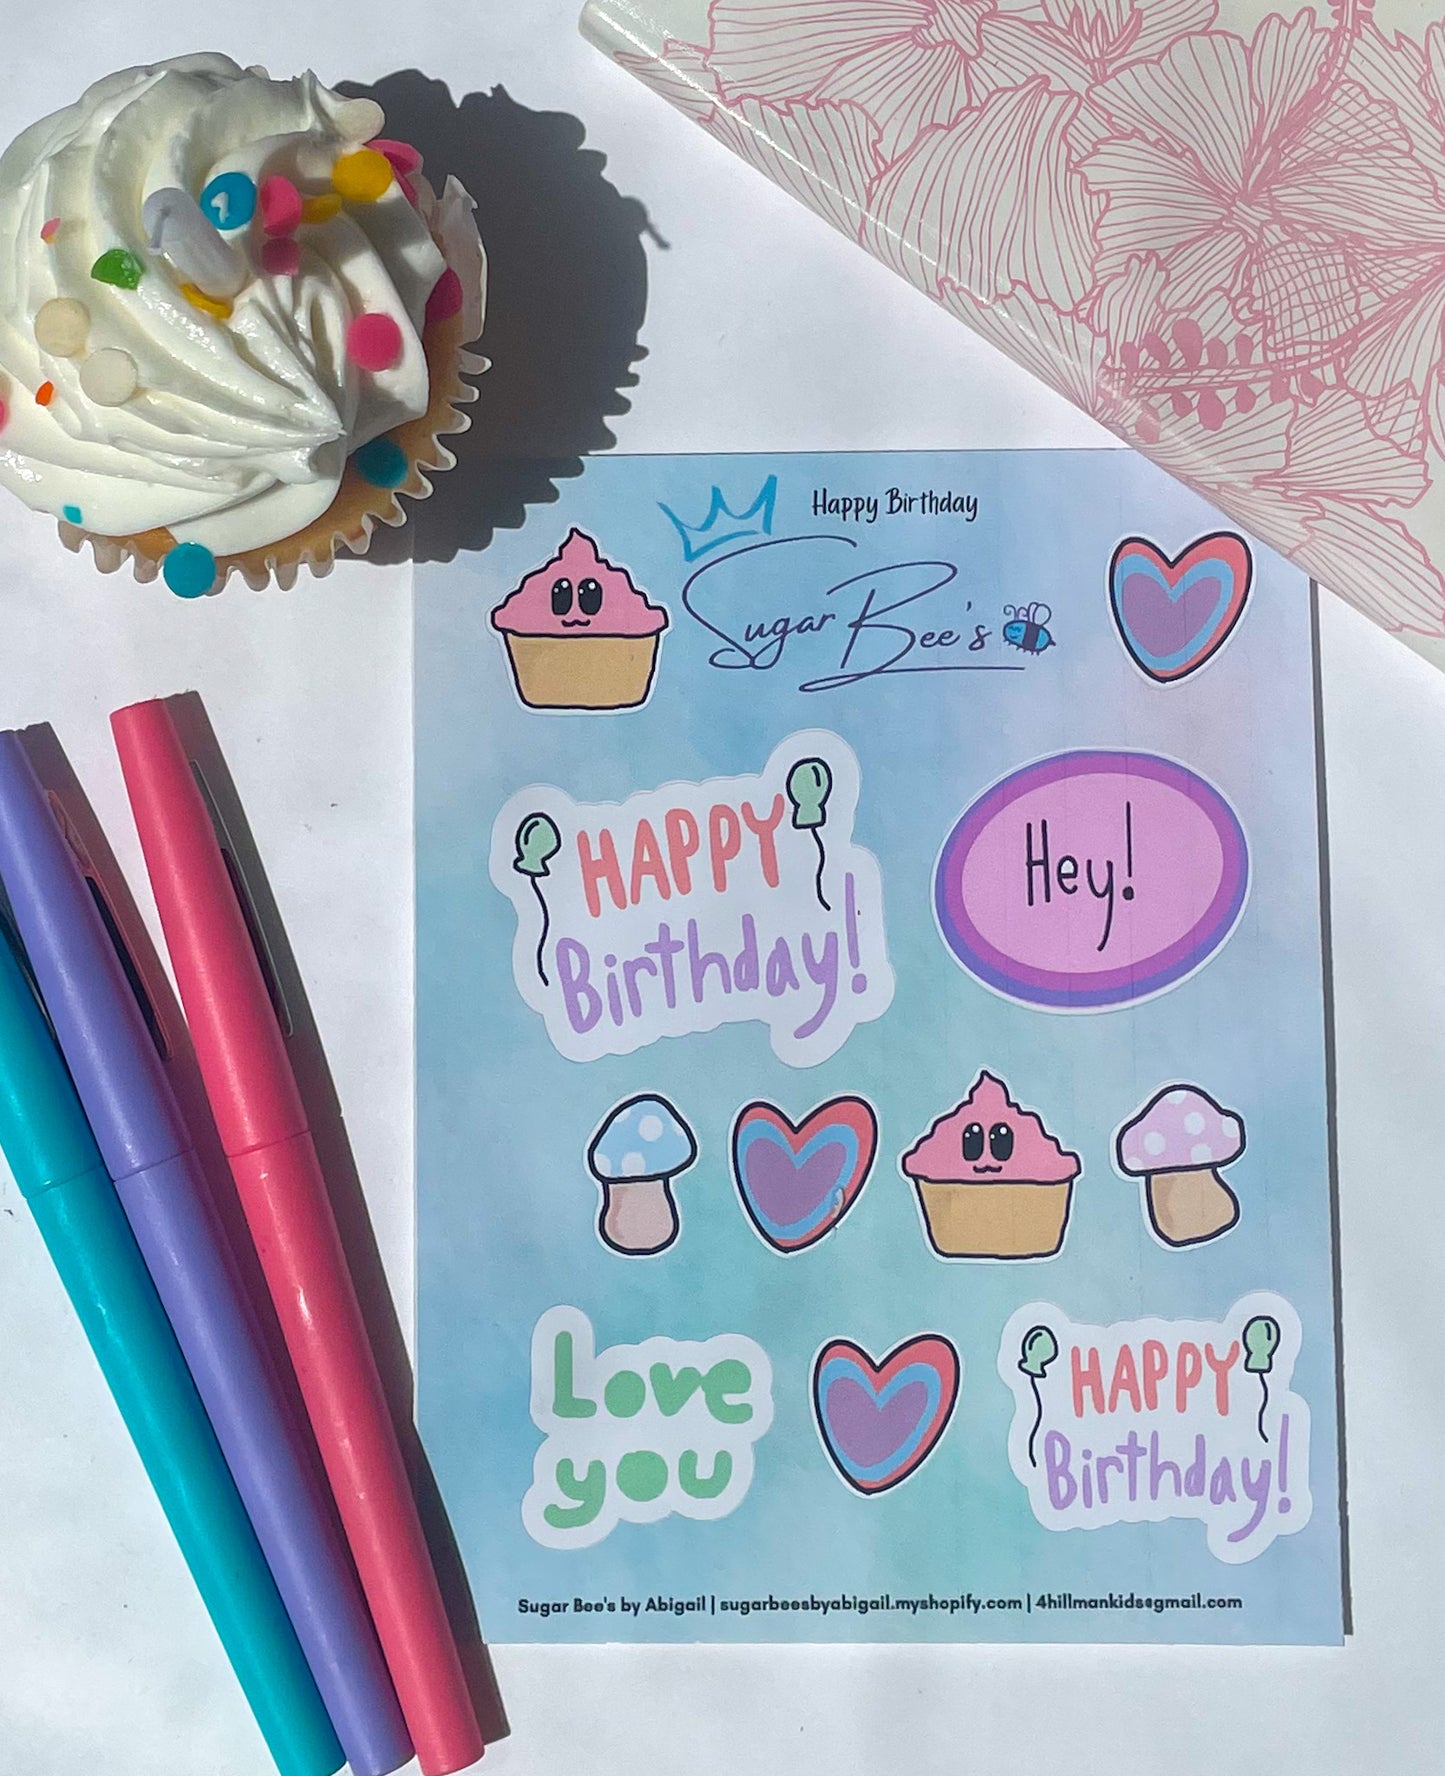 Happy Birthday
Sugar Bee's
HAPPY
Birthday!
Hey!
Love
you
HAPPY
Birthday!
Sugar Bee's by Abigail | sugarbeesbyabigail.myshopify.com | 4hillmankids@gmail.com